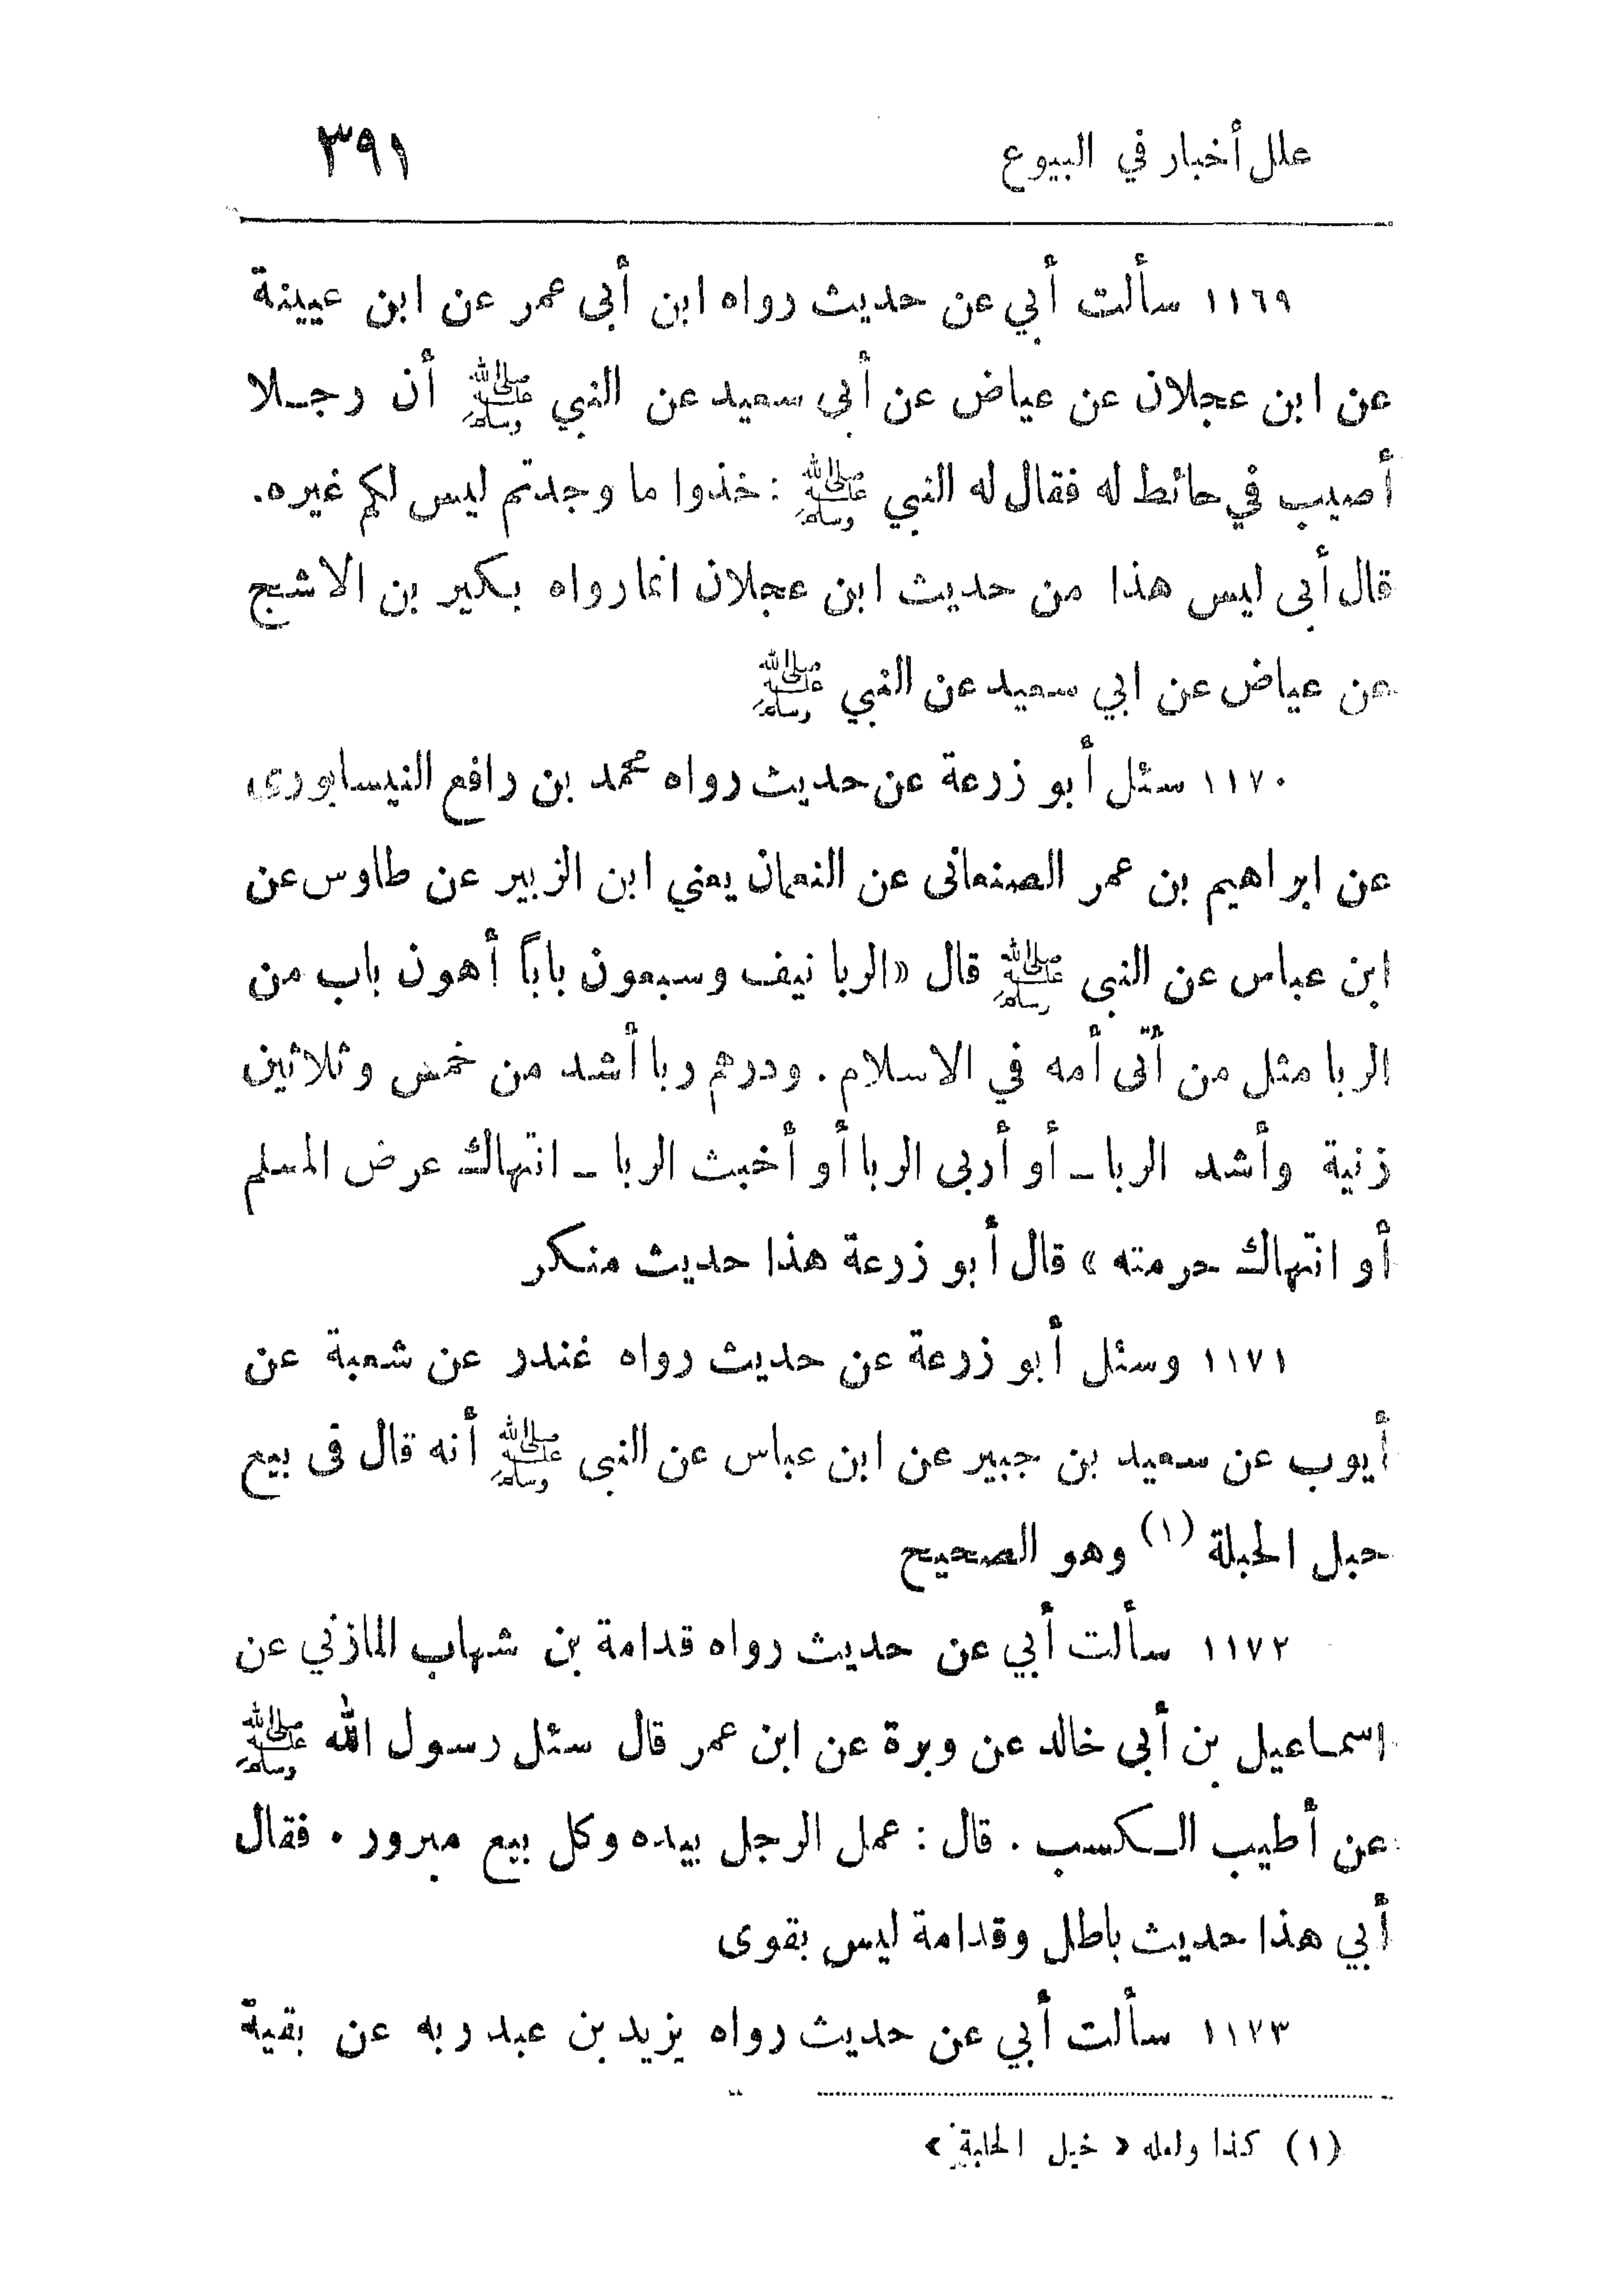 علل أخبار في البيوع ٣٩١
١١٦٩ سألت أبي عن حديث رواه ابن أبى عمر عن ابن عيينة
عن ابن عجلان عن عياض عن أبى سعيد عن النبي ﷺ أن رجـلا
أصيب في حائط له فقال له النبي ﷺ : خذوا ما وجدتم ليس لكم غيره.
قال أبى ليس هذا من حديث ابن عجلان انما رواه بكير بن الاشج
عن عياض عن ابي سعيد عن النبي ﷺ
١١٧٠ سئل أبو زرعة عن حديث رواه محمد بن رافع النيسابورى
عن ابراهيم بن عمر الصنعانى عن النعمان يعني ابن الزبير عن طاوس عن
ابن عباس عن النبى ﷺ قال «الربا نيف وسبعون باباً أهون باب من
الربا مثل من أتى أمه في الاسلام . ودرهم ربا أشد من خمس وثلاثين
زنية وأشد الربا ــ أو أربى الربا أو أخبث الربا ــ انتهاك عرض المسلم
أو انتهاك حرمته » قال أبو زرعة هذا حديث منكر
١١٧١ وسئل أبو زرعة عن حديث رواه غندر عن شعبة عن
أيوب عن سعيد بن جبير عن ابن عباس عن النبى ﷺ أنه قال فى بيع
حبل الحبلة (١) وهو الصحيح
١١٧٢ سألت أبي عن حديث رواه قدامة بن شهاب المازني عن
اسمـاعيل بن أبى خالد عن وبرة عن ابن عمر قال سئل رسول الله ﷺ
عن أطيب الـكسب . قال : عمل الرجل بيده وكل بيع مبرور . فقال
أبي هذا حديث باطل وقدامة ليس بقوى
١١٧٣ سألت أبي عن حديث رواه يزيد بن عبد ربه عن بقية
(١) كذا ولعله « خيل الحلبة »